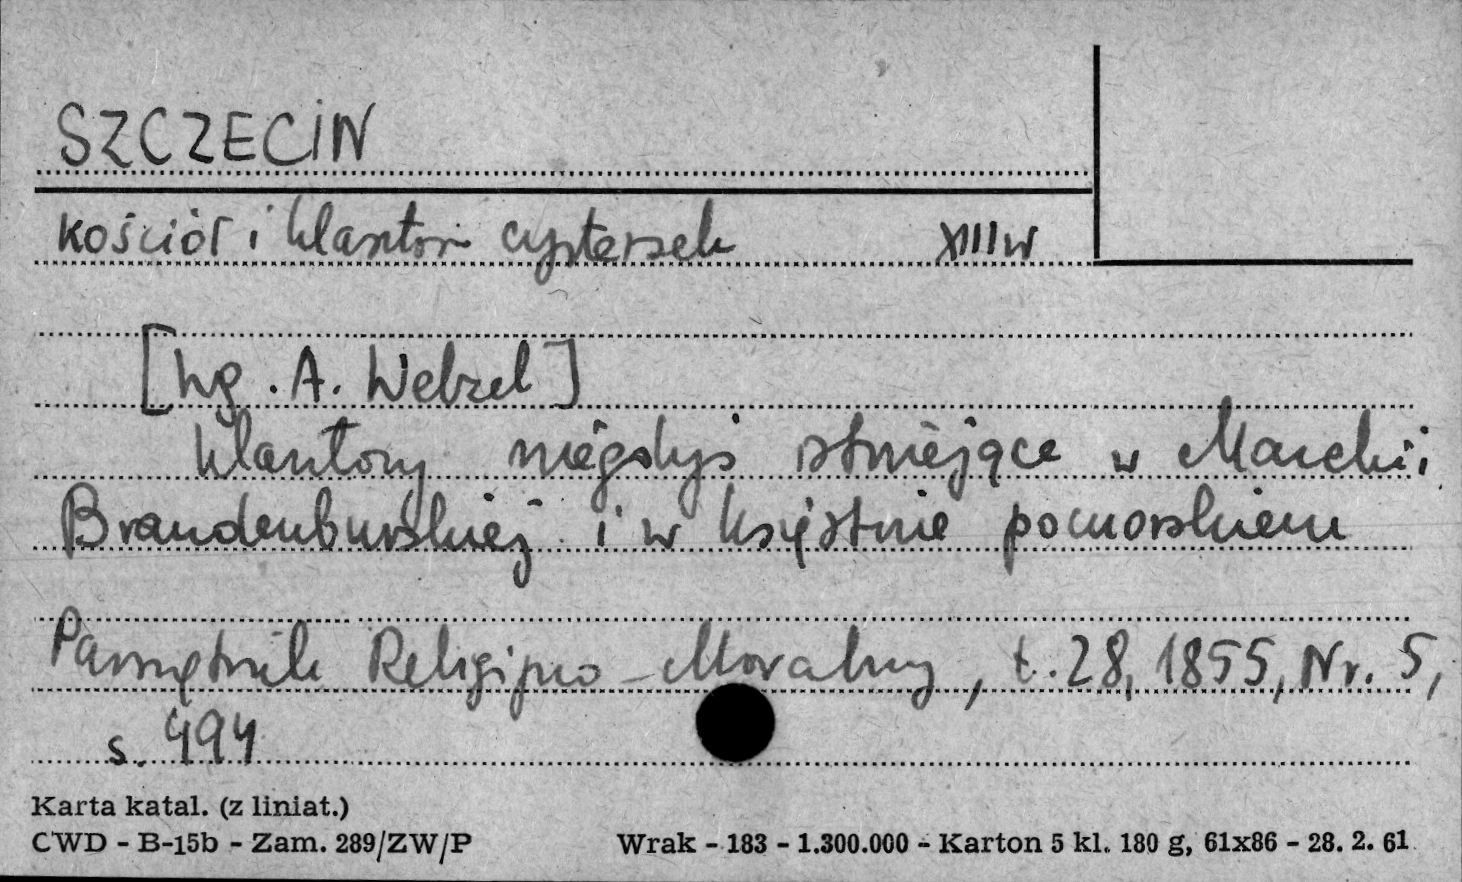 SZCZECIN
kościół i klasztor cysterek XIII w
[hg. A. Wetzel]
Klasztory niegdyś istniejące w Marchii
Brandenburskiej i w księstwie pomorskiem
Pamiętnik Religijno-Moralny, t. 28, 1855, Nr. 5,
s. 494
Karta katal. (z liniat.)
CWD - B-15b - Zam. 289/ZW/P Wrak - 183 - 1.300.000 - Karton 5 kl. 180 g, 61x86 - 28. 2. 61